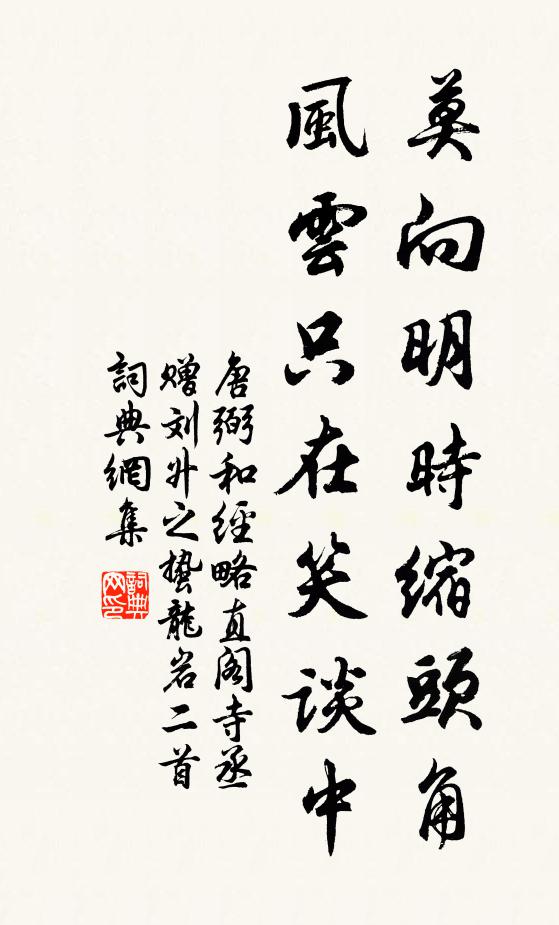 莫向明時縮頭角
風雲只在笑談中
唐弼和經略直閣寺丞
赠刘升之蛰龍岩二首
詞典網集
詞典網印